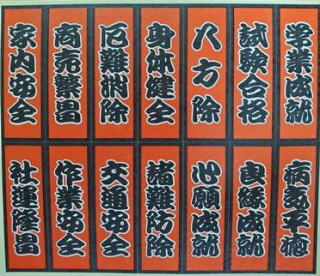 学業成就
試験合格
八方除
身体健全
厄難消除
商売繁昌
家内安全
病気平癒
良縁成就
心願成就
諸難防除
交通安全
作業安全
社運隆昌